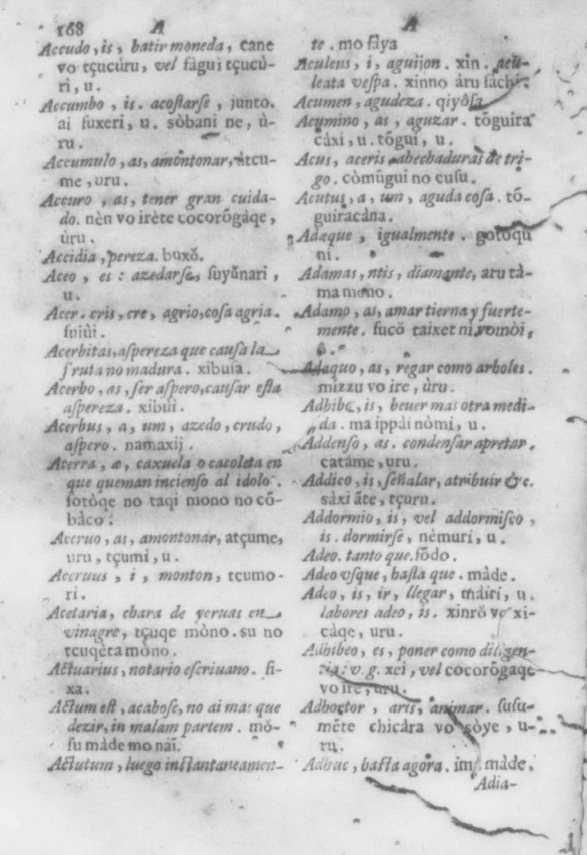 168 A
Accudo, is, batir moneda, cane
vo tçucúru, vel fàgui tçucú-
ri, u.
Accumbo, is. acostarse, junto.
ai suxeri, u. sòbani ne, ù-
ru.
Accumulo, as, amontonar, àtcu-
me, uru.
Accuro, as, tener gran cuida-
do. nèn vo irète cocorõgàqe,
ùru.
Accidia, pereza. buxŏ.
Aceo, es: azedarse, suyŭnari,
u.
Acer. cris, cre, agrio, cosa agria.
suiùi.
Acerbitas, aspereza que causa la
fruta no madura. xibusa.
Acerbo, as, ser aspero, causar esta
aspereza. xibùi.
Acerbus, a, um, azedo, crudo,
aspero. namaxij.
Acerra, æ, caxuela o cacoleta en
que queman incienso al idolo.
sotòqe no taqi mono no cõ-
bàco.
Aceruo, as, amontonar, atçume,
uru, tçumi, u.
Aceruus, i, monton, tcumo-
ri.
Acetaria, chara de yeruas en
vinagre, tçuqe mòno. su no
tcuqèta mòno.
Actuarius, notario escriuano. fi-
xa.
Actum est, acabose, no ai mas que
dezir, in malam partem. mŏ-
su màde mo nai.
Actutum, luego instantaneamen-
A
te. mo sàya
Aculeus, i, aguijon. xin. acu-
leata vespa. xinno àru fàchi.
Acumen, agudeza. qiyòsa.
Acumino, as, aguzar. tõguira
càxi, u. tõgui, u.
Acus, aceris ahechaduras de tri-
go. còmŭgui no cusu.
Acutus, a, um, aguda cosa. tõ-
guiracàna.
Adæque, igualmente. gotoqu
ni.
Adamas, ntis, diamante, aru tà-
ma mono.
Adamo, as, amar tierna y fuerte-
mente. fucŏ taixet ni vomòi,
ò.
Adaquo, as, regar como arboles.
mizzu vo ire, ùru.
Adhibe, is, beuer mas otra medi-
da. ma ippài nòmi, u.
Addenso, as. condensar apretar.
catàme, uru.
Addico, is, señalar, atribuir &c.
sàxi ãte, tçuru.
Addormio, is, vel addormisco,
is. dormirse, nèmuri, u.
Adeo. tanto que. fŏdo.
Adeo vsque, hasta que. màde.
Adeo, is, ir, llegar, màiri, u.
labores adeo, is. xinrŏ vo xi-
càqe, uru.
Adhibeo, es, poner como diligen-
zia: v. g. xei, vel cocorõgaqe
vo ire, uru.
Adhoctor, aris, animar. susu-
mête chicàra vo sòye, u-
ru.
Adhuc, hasta agora. im màde.
Adia-